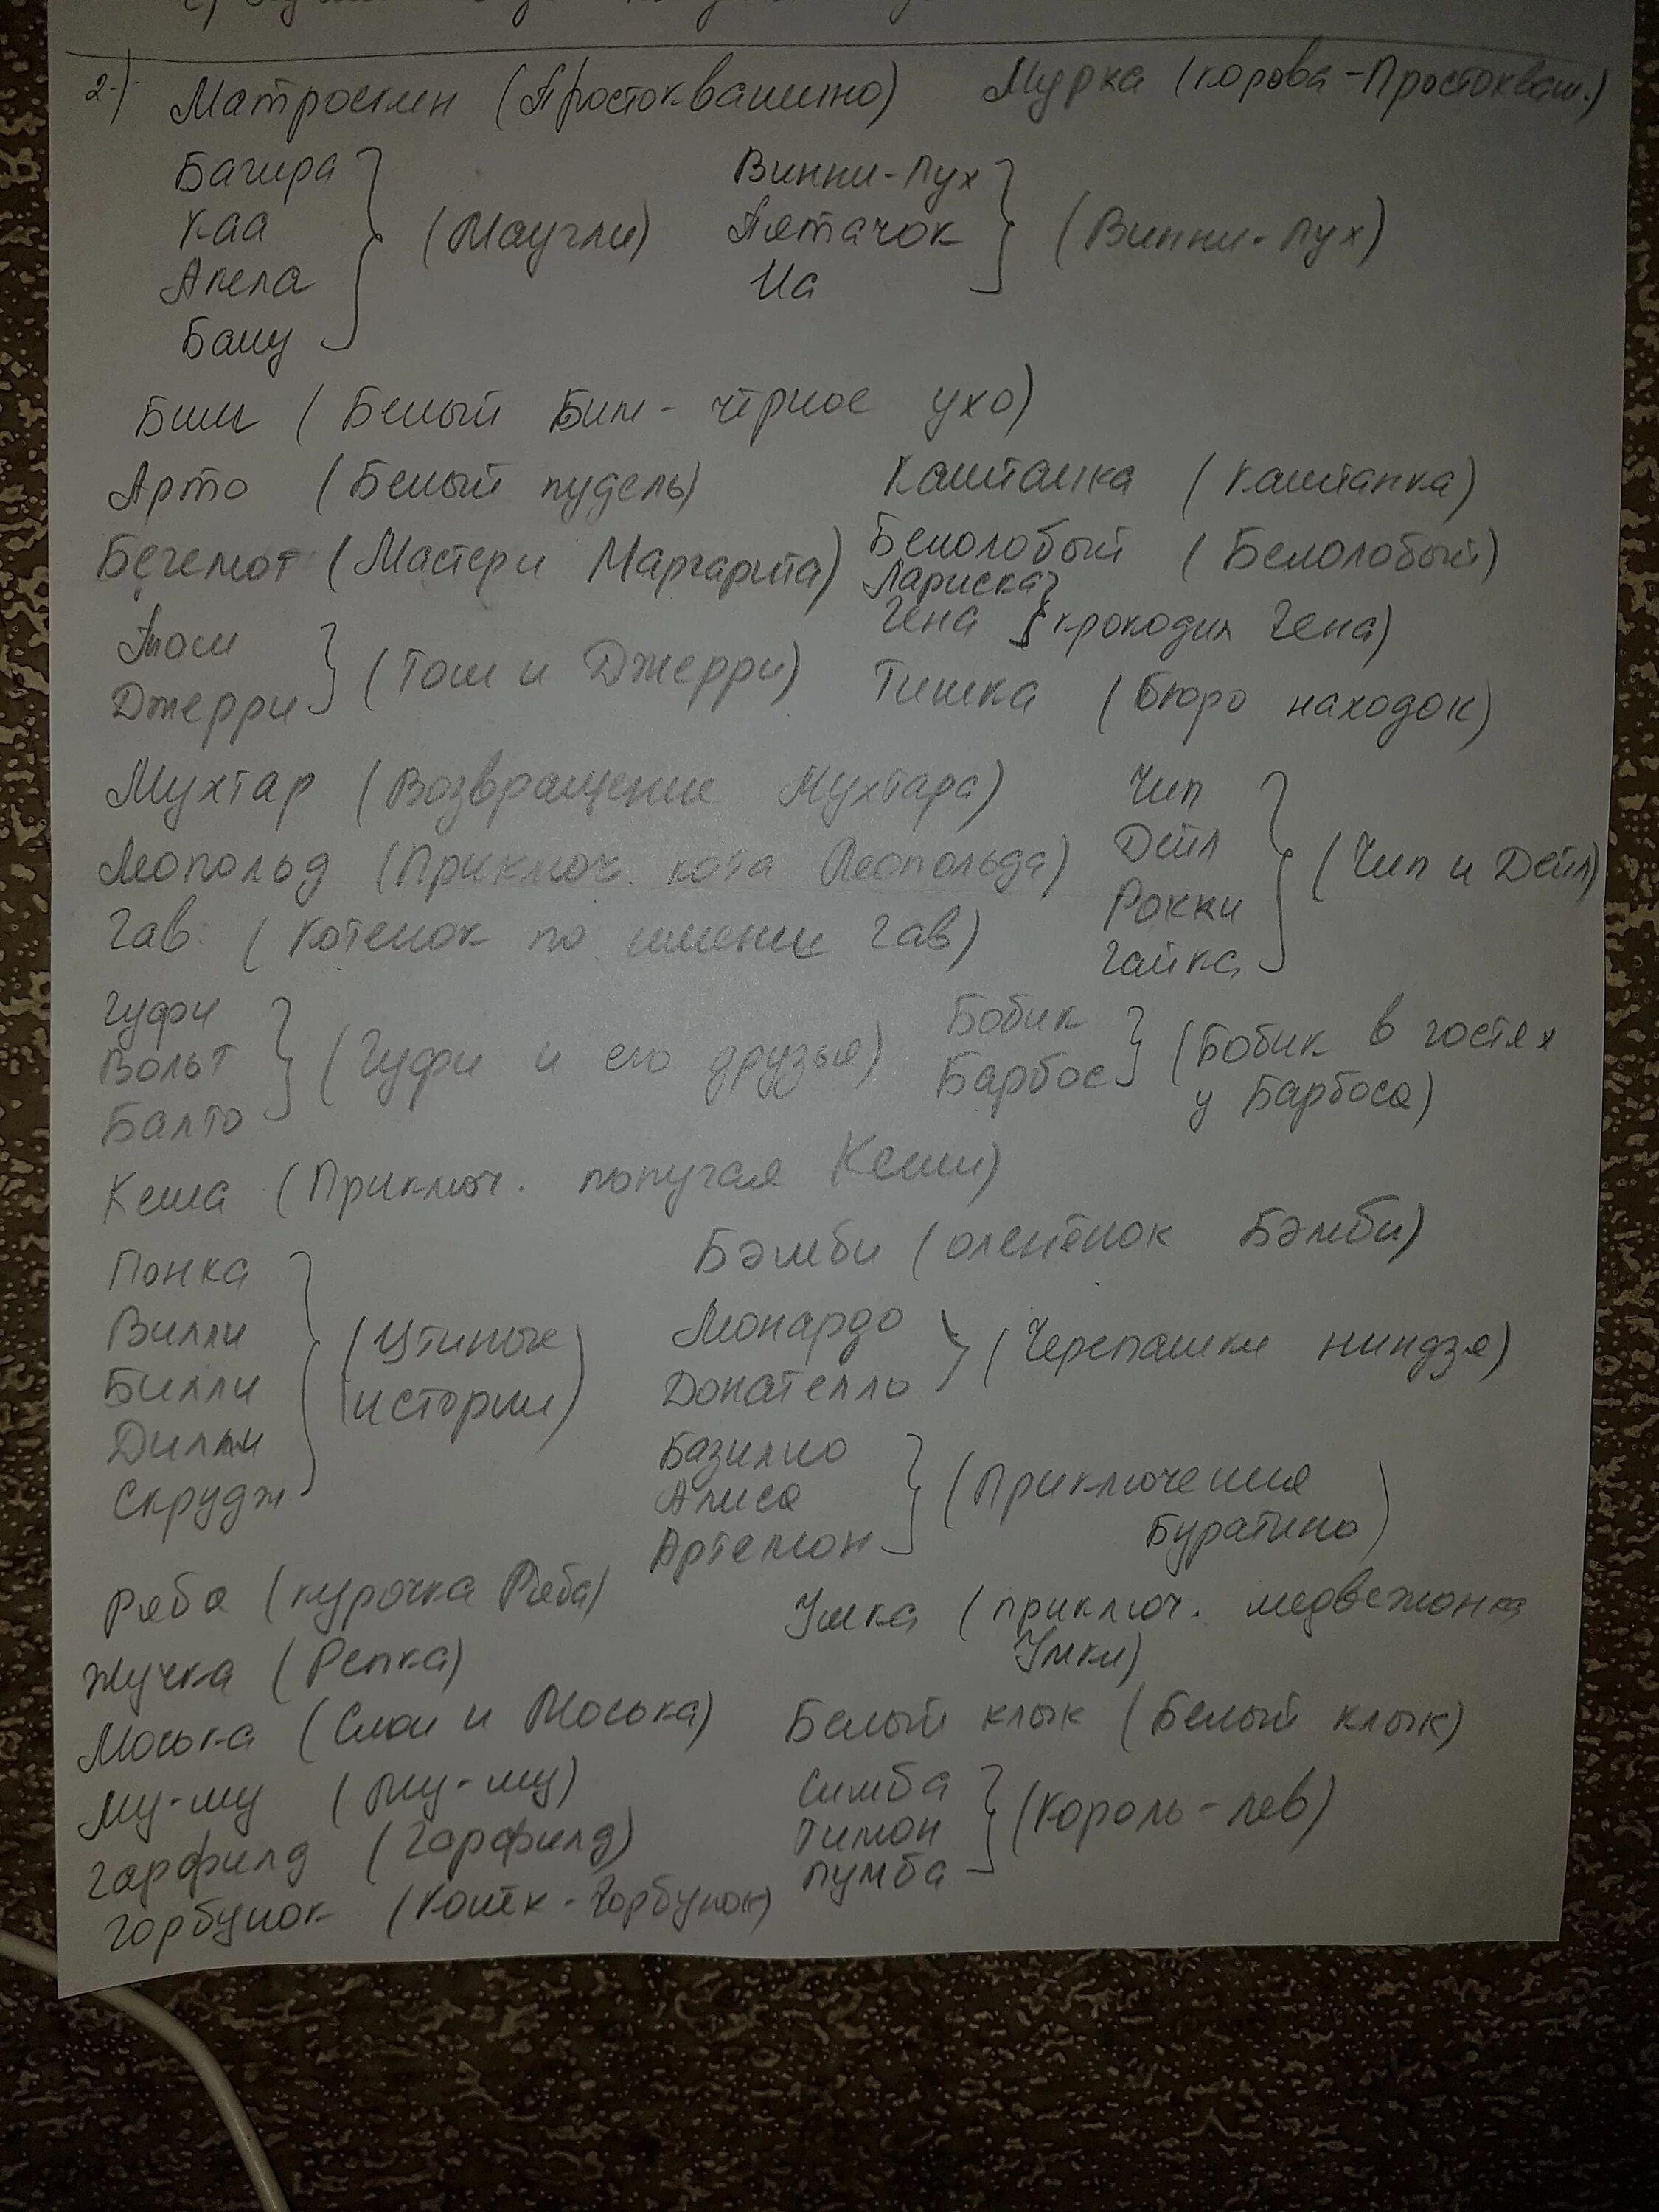 2.) Матроскин (Простоквашино) Мурка (корова-Простокваш.)
Багира
Каа
Акела
Балу
(Маугли)
Винни-Пух
Пятачок
Иа
(Винни-Пух)
Бим (Белый Бим - чёрное ухо)
Арто (Белый пудель) Каштанка (Каштанка)
Бегемот (Мастер и Маргарита) Белолобый (Белолобый)
Лариска
Гена
(крокодил Гена)
Том
Джерри
(Том и Джерри)
Тишка (Бюро находок)
Мухтар (Возвращение Мухтара)
Леопольд (Приключ. кота Леопольда)
Гав (Котенок по имени Гав)
Чип
Дейл
Рокки
Гайка
(Чип и Дейл)
Гуфи
Вольт
Балто
(Гуфи и его друзья)
Бобик
Барбос
(Бобик в гостях
у Барбоса)
Кеша (Приключ. попугая Кеши)
Бэмби (оленёнок Бэмби)
Понка
Вилли
Билли
Дилли
Скрудж
(Утиные
истории)
Леонардо
Донателло
(Черепашки ниндзя)
Базилио
Алиса
Артемон
(Приключения
Буратино)
Ряба (курочка Ряба)
Жучка (Репка)
Моська (Слон и Моська)
Му-му (Му-му)
Гарфилд (Гарфилд)
Горбунок (Конёк-Горбунок)
Умка (приключ. медвежонка
Умки)
Белый клык (Белый клык)
Симба
Тимон
Пумба
(Король-лев)